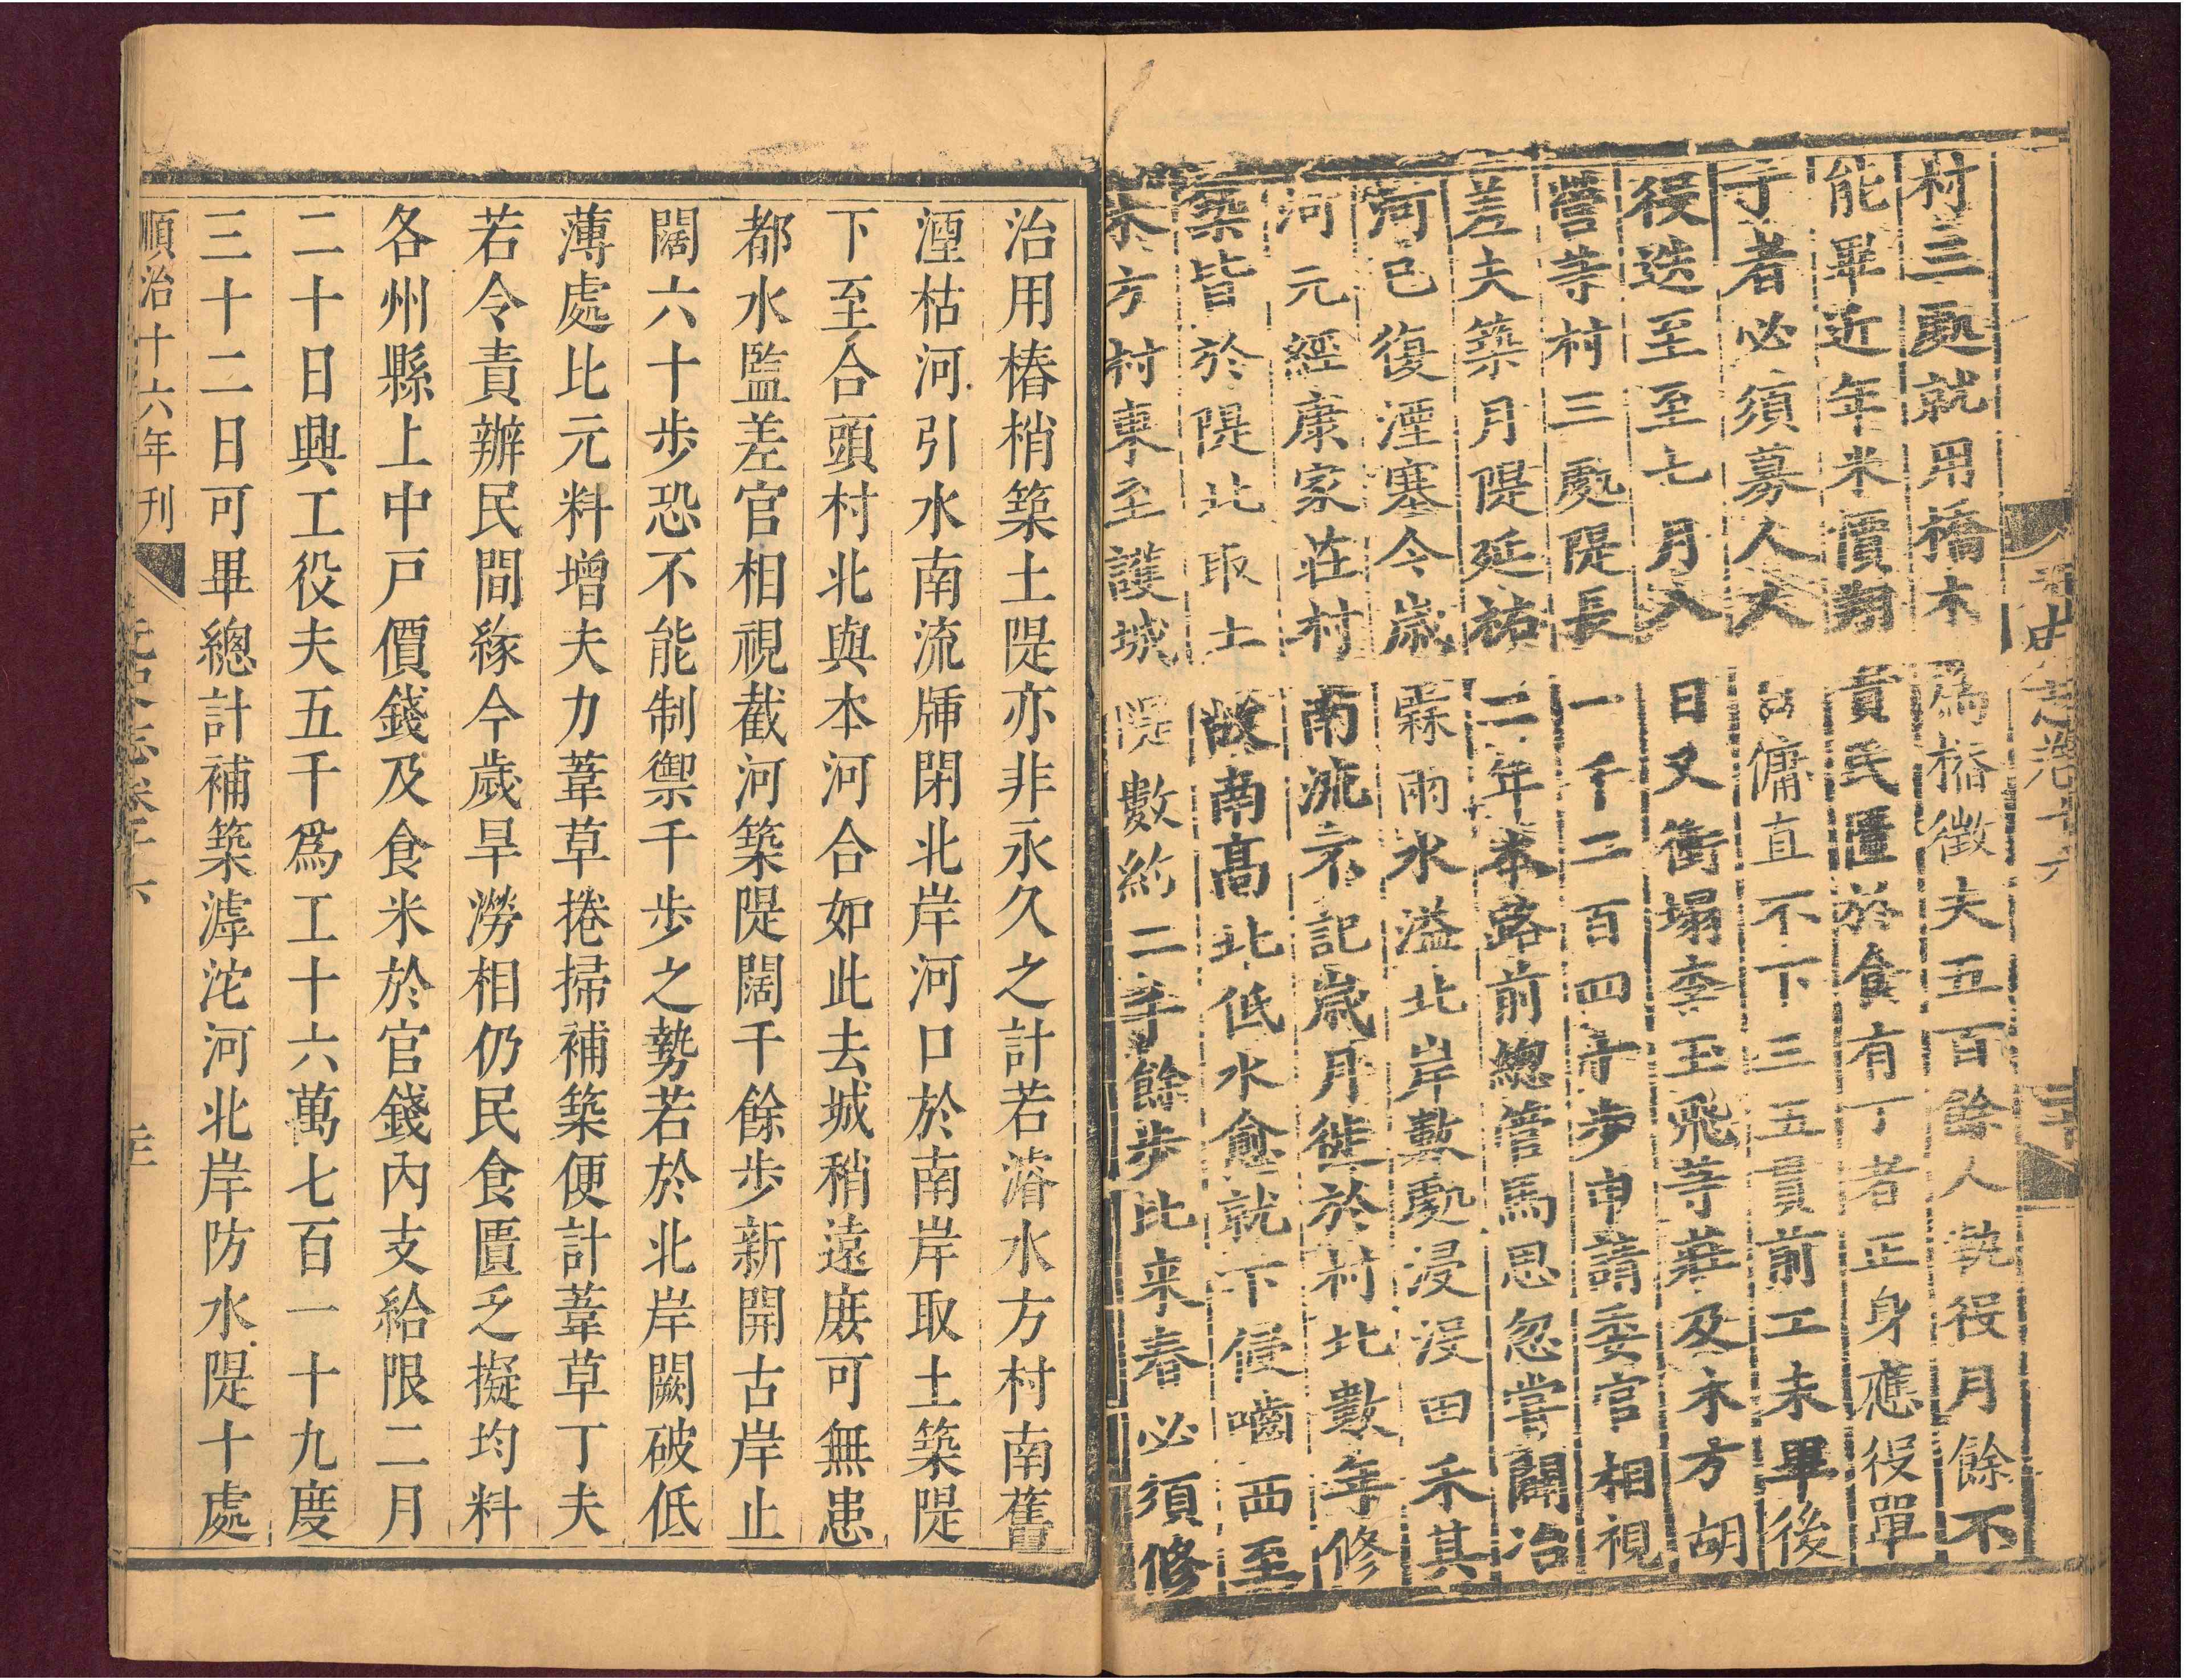 村三處就用橋木爲樁徵夫五百餘人執役月餘不
能畢近年米價翔貴民匱於食有丁者正身應役單
丁者必須募人人日傭直不下三五貫前工未畢後
役迭至至七月八日又衝塌李玉飛等莊及木方胡
營等村三處隄長一千二百四十步申請委官相視
差夫築月隄延祐二年本路前總管馬思忽嘗開冶
河已復湮塞今歲霖雨水溢北岸數處浸没田禾其
河元經康家莊村南流不記歲月徙於村北數年修
築皆於隄北取土故南高北低水愈就下侵嚙西至
木方村東至護城隄數約二千餘步比来春必須修
治用樁梢築土隄亦非永久之計若濬水方村南舊
湮枯河引水南流牐閉北岸河口於南岸取土築隄
下至合頭村北與本河合如此去城稍遠庻可無患
都水監差官相視截河築隄闊千餘步新開古岸止
闊六十步恐不能制禦千步之勢若於北岸闕破低
薄處比元料增夫力葦草捲掃補築便計葦草丁夫
若令責辦民間緣今歲旱澇相仍民食匱乏擬均料
各州縣上中戸價錢及食米於官錢內支給限二月
二十日興工役夫五千爲工十六萬七百一十九度
三十二日可畢總計補築滹沱河北岸防水隄十處
順治十六年刊 元史志卷十六